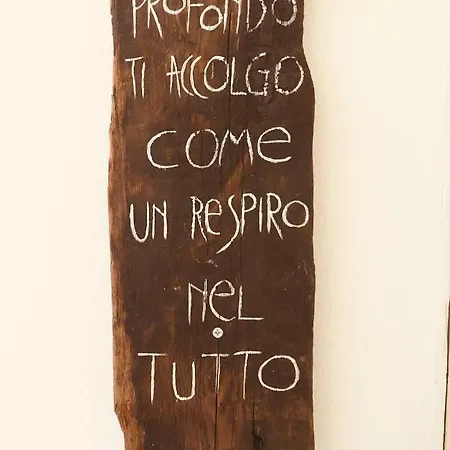 PROFONDO
TI ACCOLGO
COME
UN RESPIRO
NEL
TUTTO